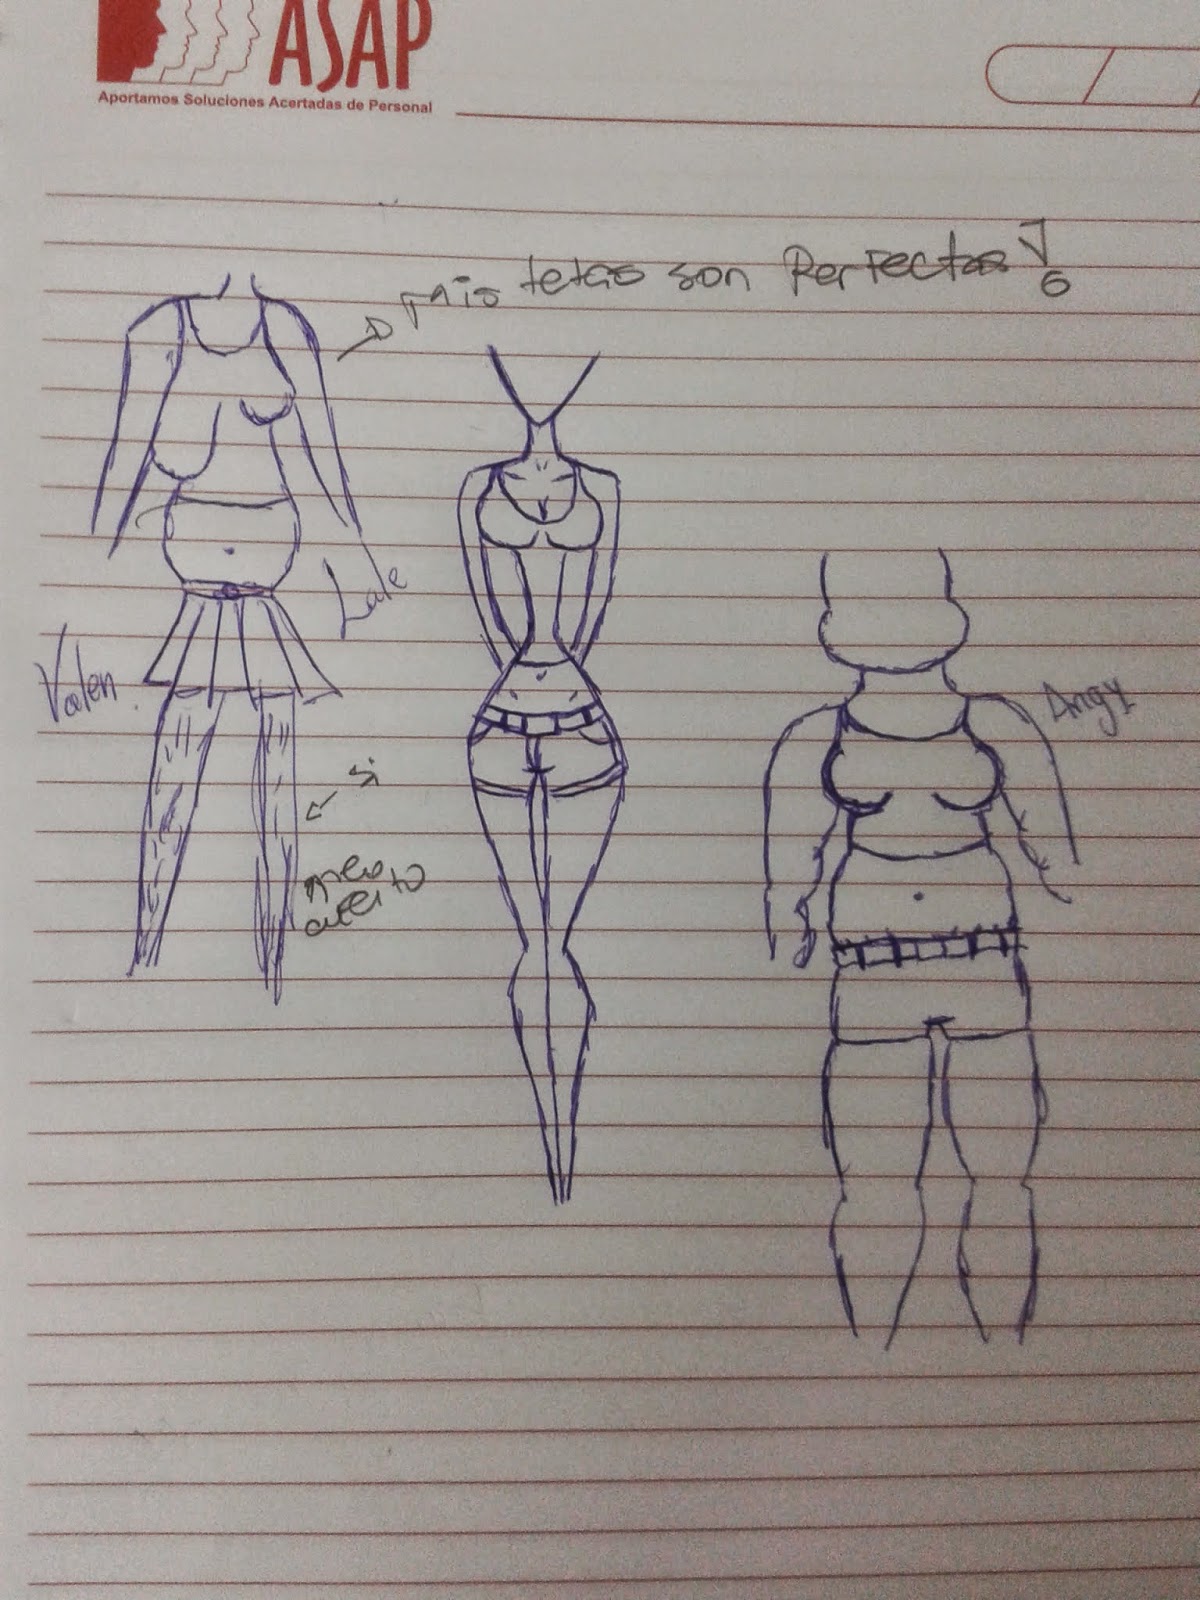 ASAP
Aportamos Soluciones Acertadas de Personal
mis tetas son Perfectas
Late
Valen
Angy
← si